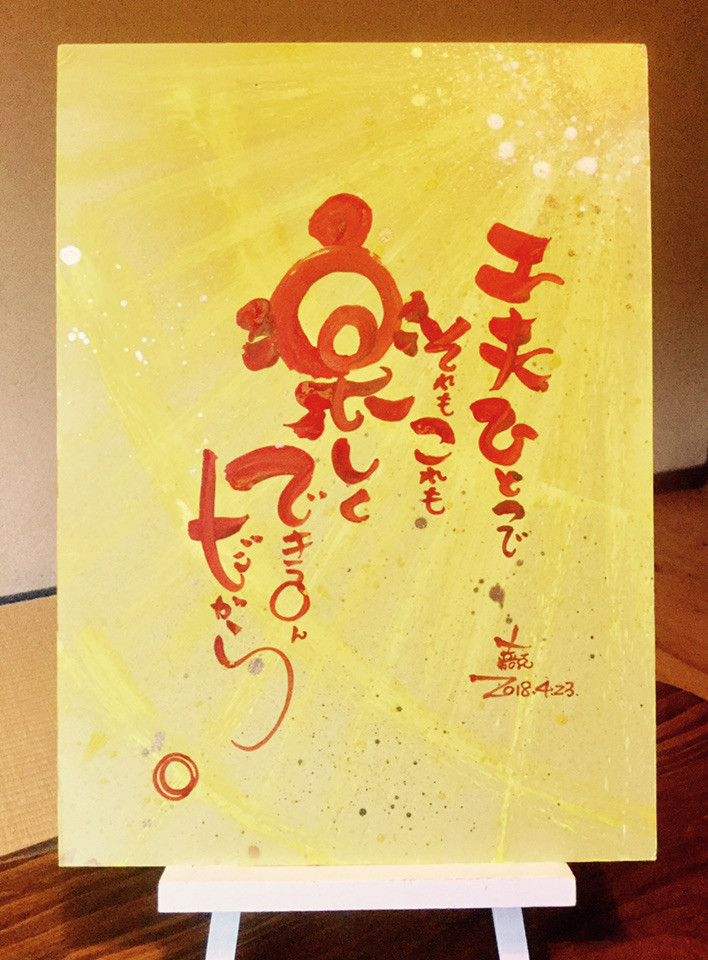 工夫ひとつで
それもこれも
楽しく
できるん
だから
2018.4.23.